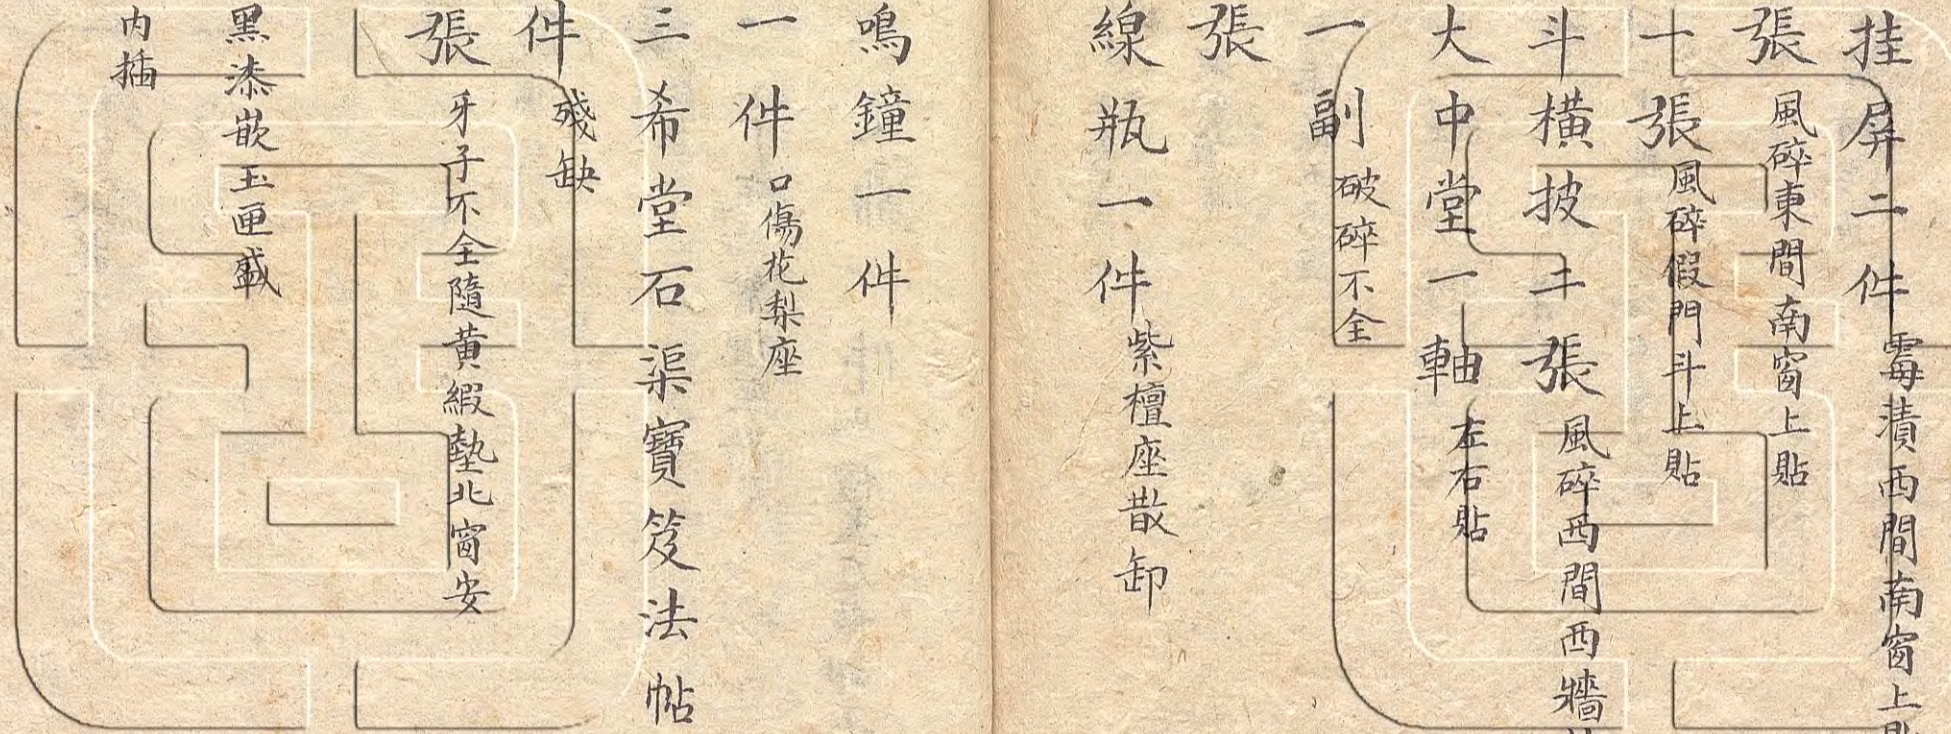 挂屏二件霉漬西間南窗上
張風碎東間南窗上貼
十張風碎假門斗上貼
斗橫披二張風碎西間西牆
大中堂一軸左右貼
一副破碎不全
張
線瓶一件紫檀座散卸
鳴鐘一件
一件口傷花梨座
三希堂石渠寶笈法帖
件殘缺
張牙子不全隨黃緞墊北窗安
黑漆嵌玉匣盛
內插